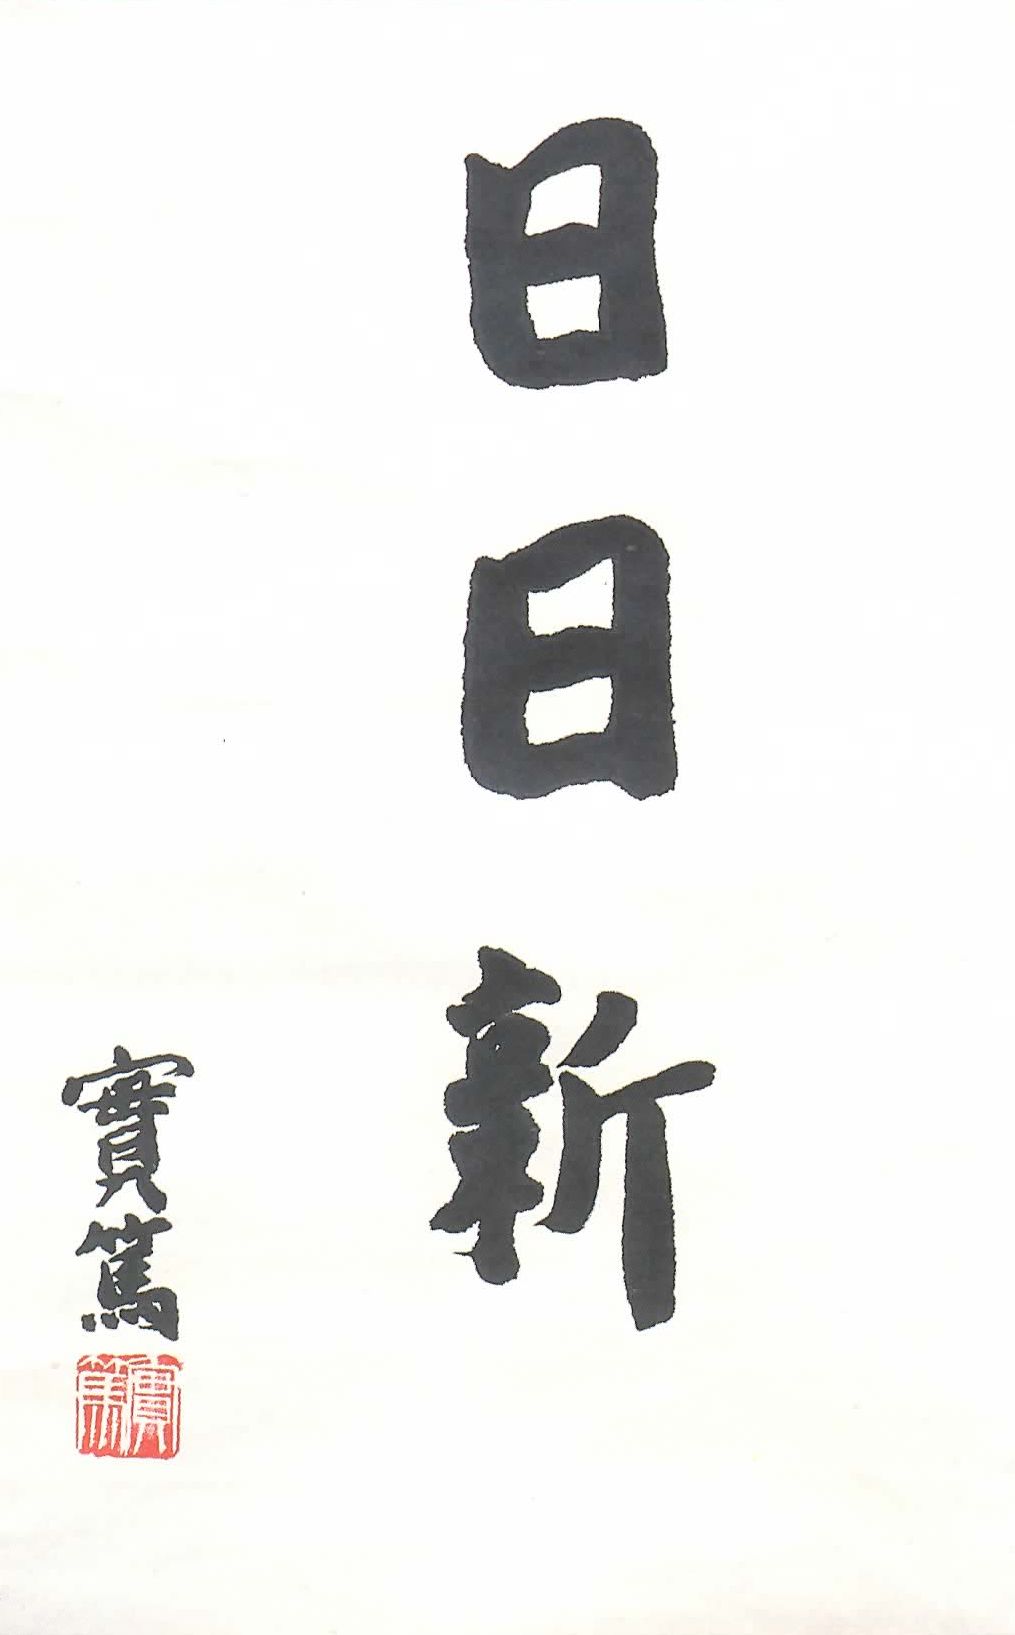 日日新
實篤
實篤